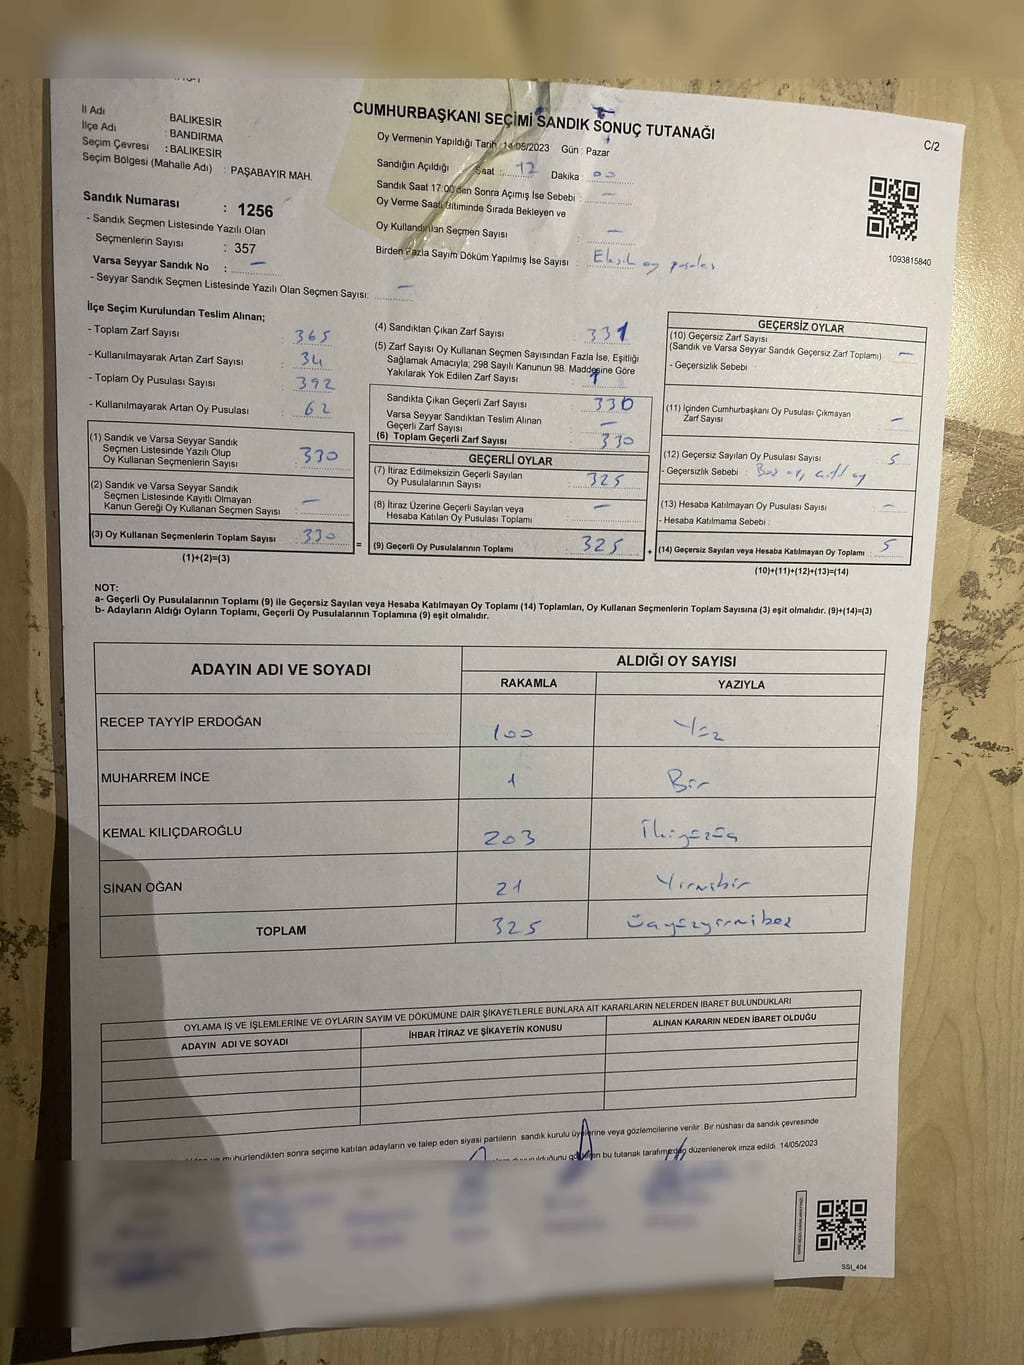 CUMHURBAŞKANI SEÇİMİ SANDIK SONUÇ TUTANAĞI
C/2
İl Adı BALIKESİR
İlçe Adı : BANDIRMA
Seçim Çevresi : BALIKESİR
Seçim Bölgesi (Mahalle Adı) : PAŞABAYIR MAH.
Sandık Numarası : 1256
- Sandık Seçmen Listesinde Yazılı Olan
Seçmenlerin Sayısı : 357
Varsa Seyyar Sandık No : —
- Seyyar Sandık Seçmen Listesinde Yazılı Olan Seçmen Sayısı: —
Oy Vermenin Yapıldığı Tarih : 14/05/2023 Gün : Pazar
Sandığın Açıldığı Saat : 17 Dakika : 00
Sandık Saat 17:00'den Sonra Açımış İse Sebebi : —
Oy Verme Saati Bitiminde Sırada Bekleyen ve
Oy Kullandırılan Seçmen Sayısı : —
Birden Fazla Sayım Döküm Yapılmış İse Sayısı : Eksik oy pusulası
1093815840
İlçe Seçim Kurulundan Teslim Alınan;
- Toplam Zarf Sayısı : 365
- Kullanılmayarak Artan Zarf Sayısı : 34
- Toplam Oy Pusulası Sayısı : 392
- Kullanılmayarak Artan Oy Pusulası : 62
(1) Sandık ve Varsa Seyyar Sandık
Seçmen Listesinde Yazılı Olup
Oy Kullanan Seçmenlerin Sayısı : 330
(2) Sandık ve Varsa Seyyar Sandık
Seçmen Listesinde Kayıtlı Olmayan
Kanun Gereği Oy Kullanan Seçmen Sayısı : —
(3) Oy Kullanan Seçmenlerin Toplam Sayısı : 330
(1)+(2)=(3)
(4) Sandıktan Çıkan Zarf Sayısı : 331
(5) Zarf Sayısı Oy Kullanan Seçmen Sayısından Fazla İse, Eşitliği
Sağlamak Amacıyla; 298 Sayılı Kanunun 98. Maddesine Göre
Yakılarak Yok Edilen Zarf Sayısı : 1
Sandıkta Çıkan Geçerli Zarf Sayısı : 330
Varsa Seyyar Sandıktan Teslim Alınan
Geçerli Zarf Sayısı : —
(6) Toplam Geçerli Zarf Sayısı : 330
GEÇERLİ OYLAR
(7) İtiraz Edilmeksizin Geçerli Sayılan
Oy Pusulalarının Sayısı : 325
(8) İtiraz Üzerine Geçerli Sayılan veya
Hesaba Katılan Oy Pusulası Toplamı : —
= (9) Geçerli Oy Pusulalarının Toplamı : 325 +
GEÇERSİZ OYLAR
(10) Geçersiz Zarf Sayısı
(Sandık ve Varsa Seyyar Sandık Geçersiz Zarf Toplamı) : —
- Geçersizlik Sebebi
(11) İçinden Cumhurbaşkanı Oy Pusulası Çıkmayan
Zarf Sayısı : —
(12) Geçersiz Sayılan Oy Pusulası Sayısı : 5
- Geçersizlik Sebebi : Boş oy, çift oy
(13) Hesaba Katılmayan Oy Pusulası Sayısı : —
- Hesaba Katılmama Sebebi :
(14) Geçersiz Sayılan veya Hesaba Katılmayan Oy Toplamı : 5
(10)+(11)+(12)+(13)=(14)
NOT:
a- Geçerli Oy Pusulalarının Toplamı (9) ile Geçersiz Sayılan veya Hesaba Katılmayan Oy Toplamı (14) Toplamları, Oy Kullanan Seçmenlerin Toplam Sayısına (3) eşit olmalıdır. (9)+(14)=(3)
b- Adayların Aldığı Oyların Toplamı, Geçerli Oy Pusulalarının Toplamına (9) eşit olmalıdır.
ADAYIN ADI VE SOYADI ALDIĞI OY SAYISI
RAKAMLA YAZIYLA
RECEP TAYYİP ERDOĞAN 100 Yüz
MUHARREM İNCE 1 Bir
KEMAL KILIÇDAROĞLU 203 İkiyüzüç
SİNAN OĞAN 21 Yirmibir
TOPLAM 325 üçyüzyirmibeş
OYLAMA İŞ VE İŞLEMLERİNE VE OYLARIN SAYIM VE DÖKÜMÜNE DAİR ŞİKAYETLERLE BUNLARA AİT KARARLARIN NELERDEN İBARET BULUNDUKLARI
ADAYIN ADI VE SOYADI İHBAR İTİRAZ VE ŞİKAYETİN KONUSU ALINAN KARARIN NEDEN İBARET OLDUĞU
mühürlendikten sonra seçime katılan adayların ve talep eden siyasi partilerin sandık kurulu üyelerine veya gözlemcilerine verilir. Bir nüshası da sandık çevresinde
bu tutanak tarafımızdan düzenlenerek imza edildi. 14/05/2023
SSI_404